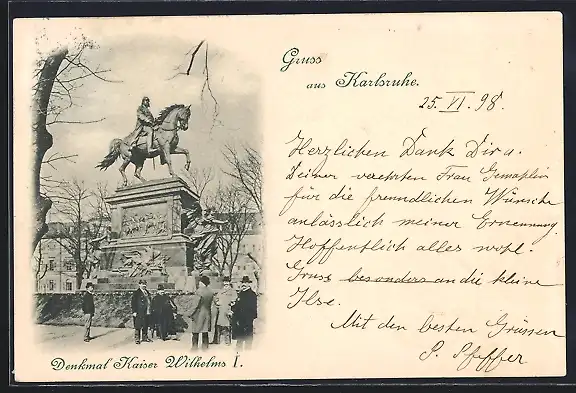 Gruss
aus Karlsruhe.
25. VI. 98.
Herzlichen Dank Dir u.
Deiner verehrten Frau Gemahlin
für die freundlichen Wünsche
anlässlich meiner Ernennung.
Hoffentlich alles wohl.
Gruss besonders an die kleine
Ilse.
Mit den besten Grüssen
P. Pfeffer
Denkmal Kaiser Wilhelms I.